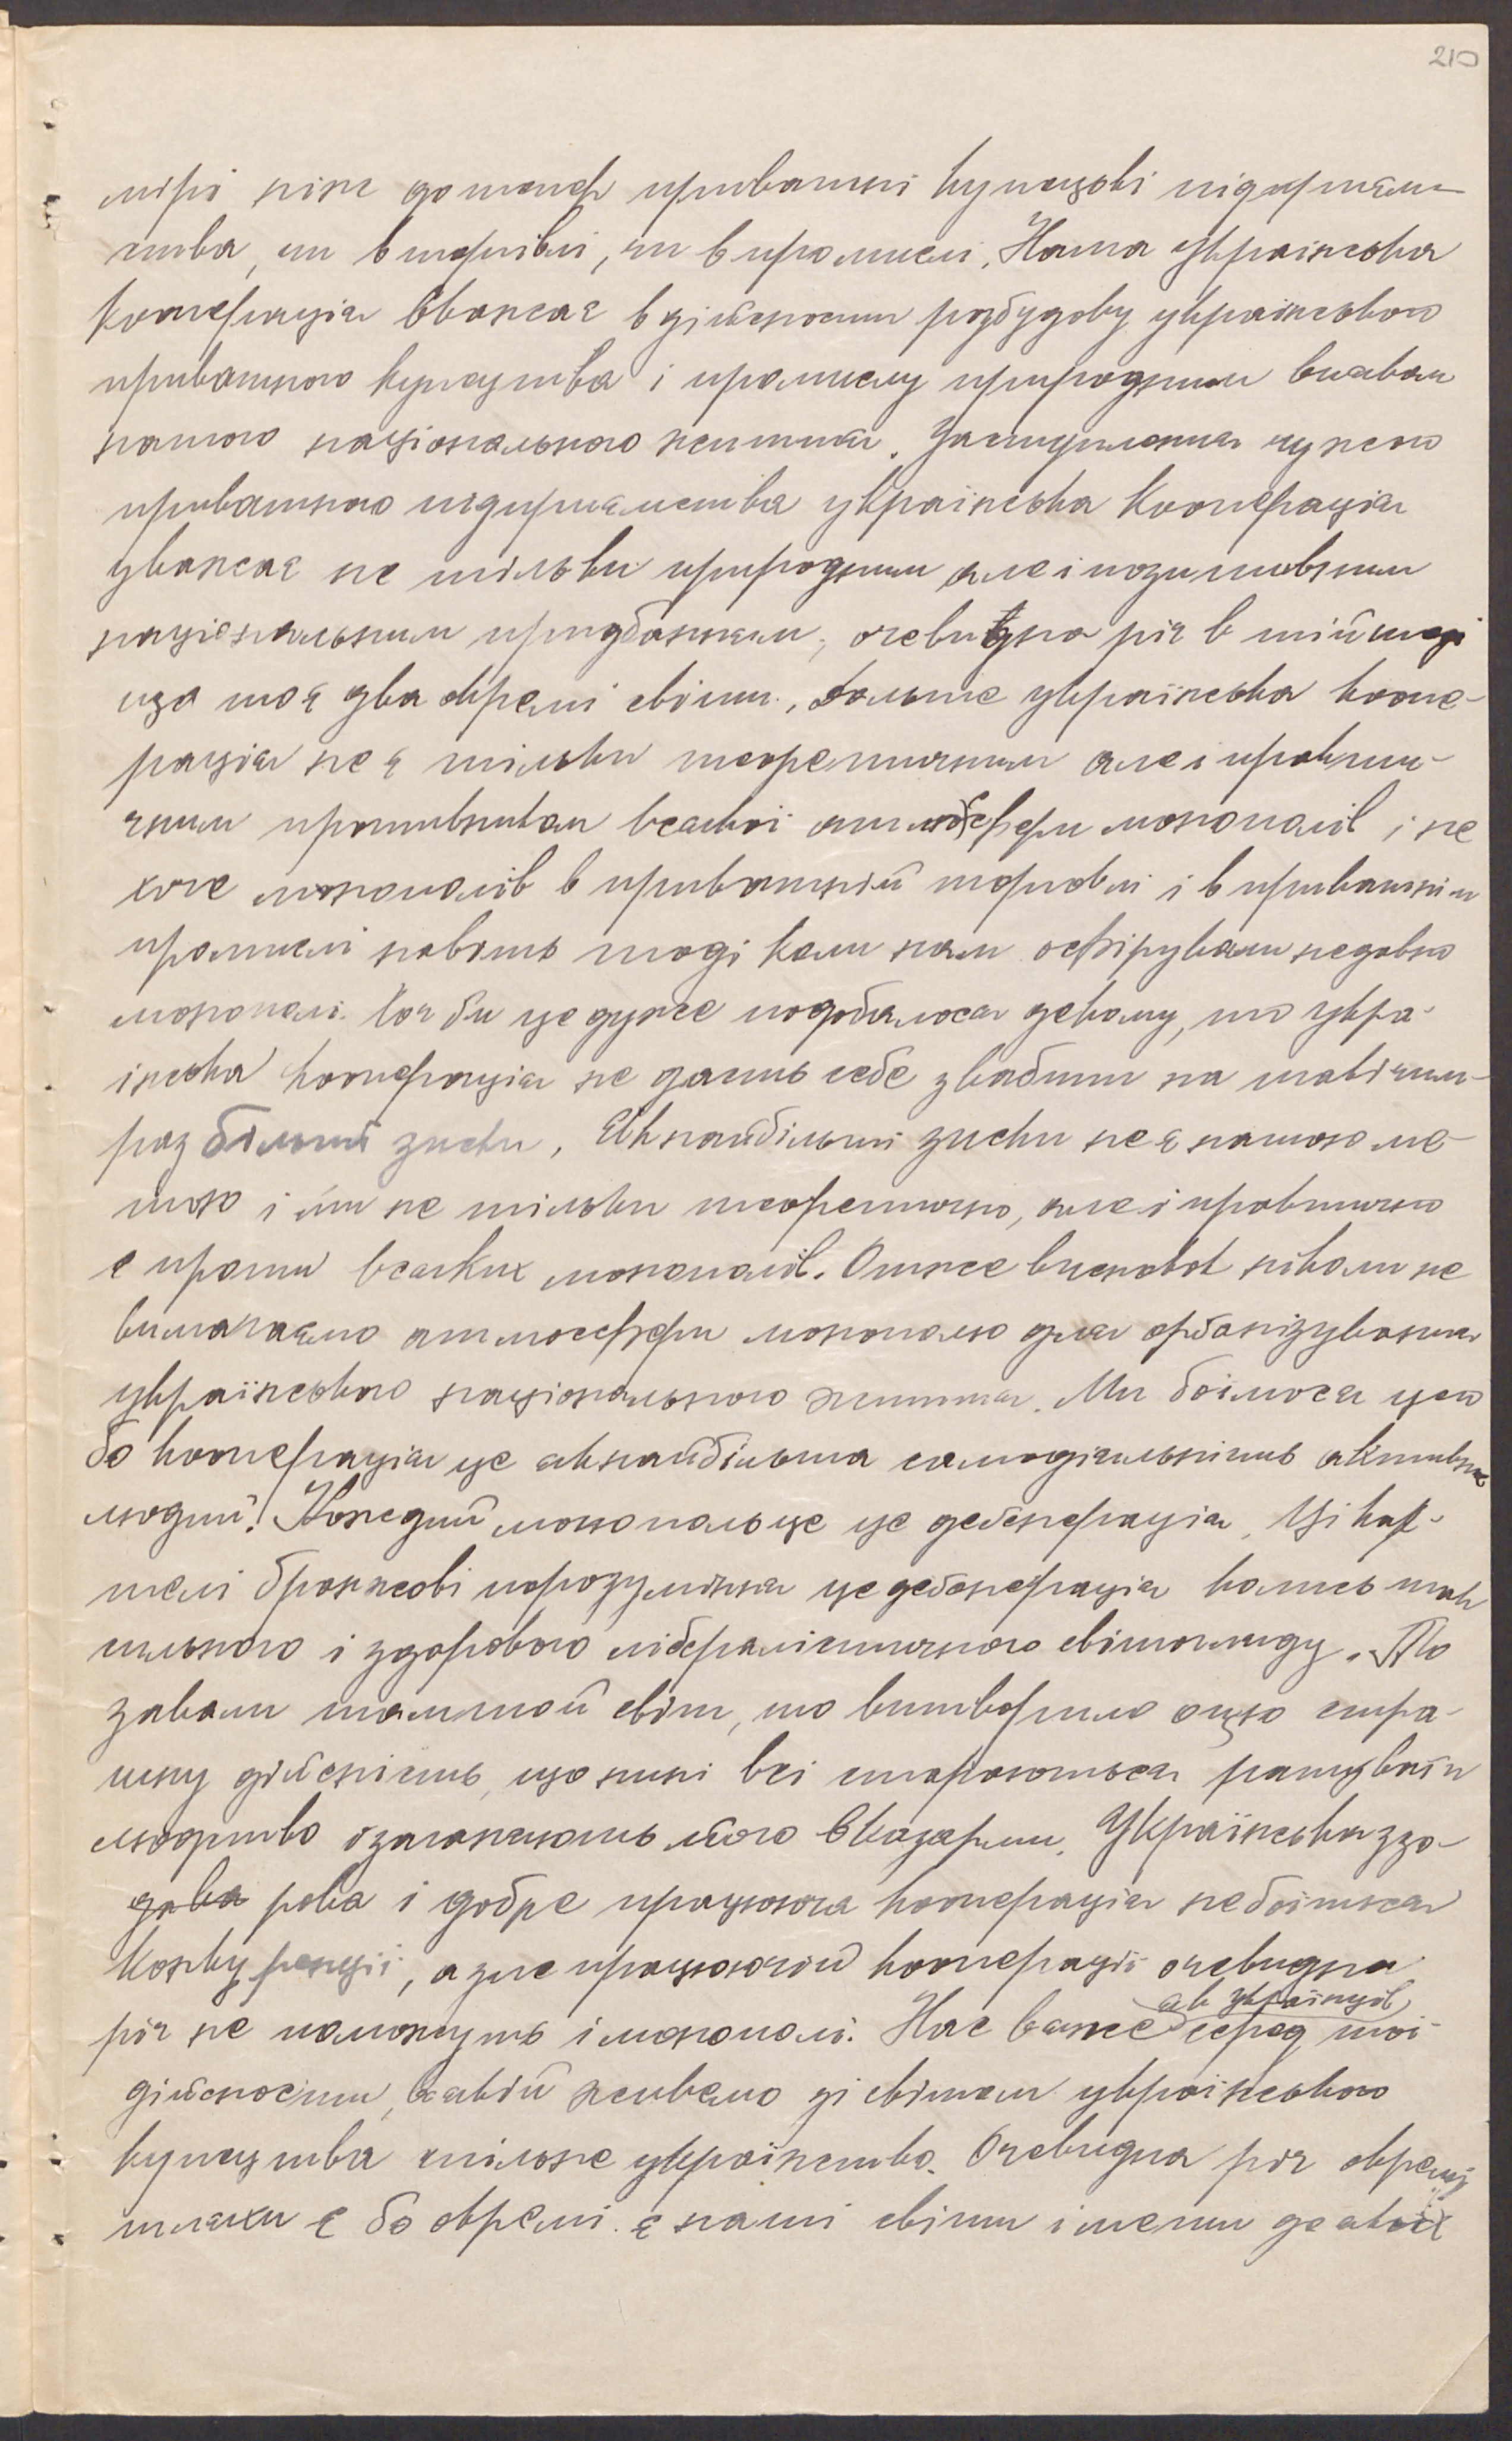 210
мірі ніж дотепер приватні купецькі підприєм-
ства, чи в торгівлі, чи в промислі. Наша українська
кооперація вважає в дійсности розбудову українського
приватного купецтва і промислу природним виявом
нашого національного життя. Заступлення чужого
приватного підприємства українська кооперація
уважає не тільки природним але і позитивним
національним придбанням, очевидна річ в тій мірі
що то є два окремі світи. Больше українська коопе-
рація не є тільки теоретичним але і практи-
чним противником всякої атмосфери монополів і не
хоче монополів в приватній торговлі і в приватнім
промислі навіть тоді коли нам оферували недавно
монополі. Хоч би це дуже подобалося декому, то укра-
їнська кооперація не дасть себе звабити на такі чим-
раз більші зиски. Якнайбільші зиски не є нашою ме-
тою і ми не тільки теоретично, але і практично
є проти всяких монополів. Отже висновок ніколи не
вимагаємо атмосфери монополю для організування
українського національного життя. Ми боїмося цего
бо кооперація це якнайбільша самодіяльність активних
людий! Кождий монополь це це дегенерація. Ці кар-
телі бранжові порозуміння це дегенерація колись так
сильного і здорового лібералістичного світогляду. То
завалив таммой світ, що витворило оцю стра-
шну дійсність, що нині всі стараються рятувати
людство і заганяють його в казарми. Українська здо-
рова і добре працююча кооперація не боїться
конкуренції, а зле працюючій кооперації очевидна
як українців
річ не поможуть і монополі. Нас вяже серед тої
дійсности, в якій живемо зі світом українського
купецтва спільне українство. Очевидна річ окремі
шляхи є бо окремі є наші світи і мети до яких